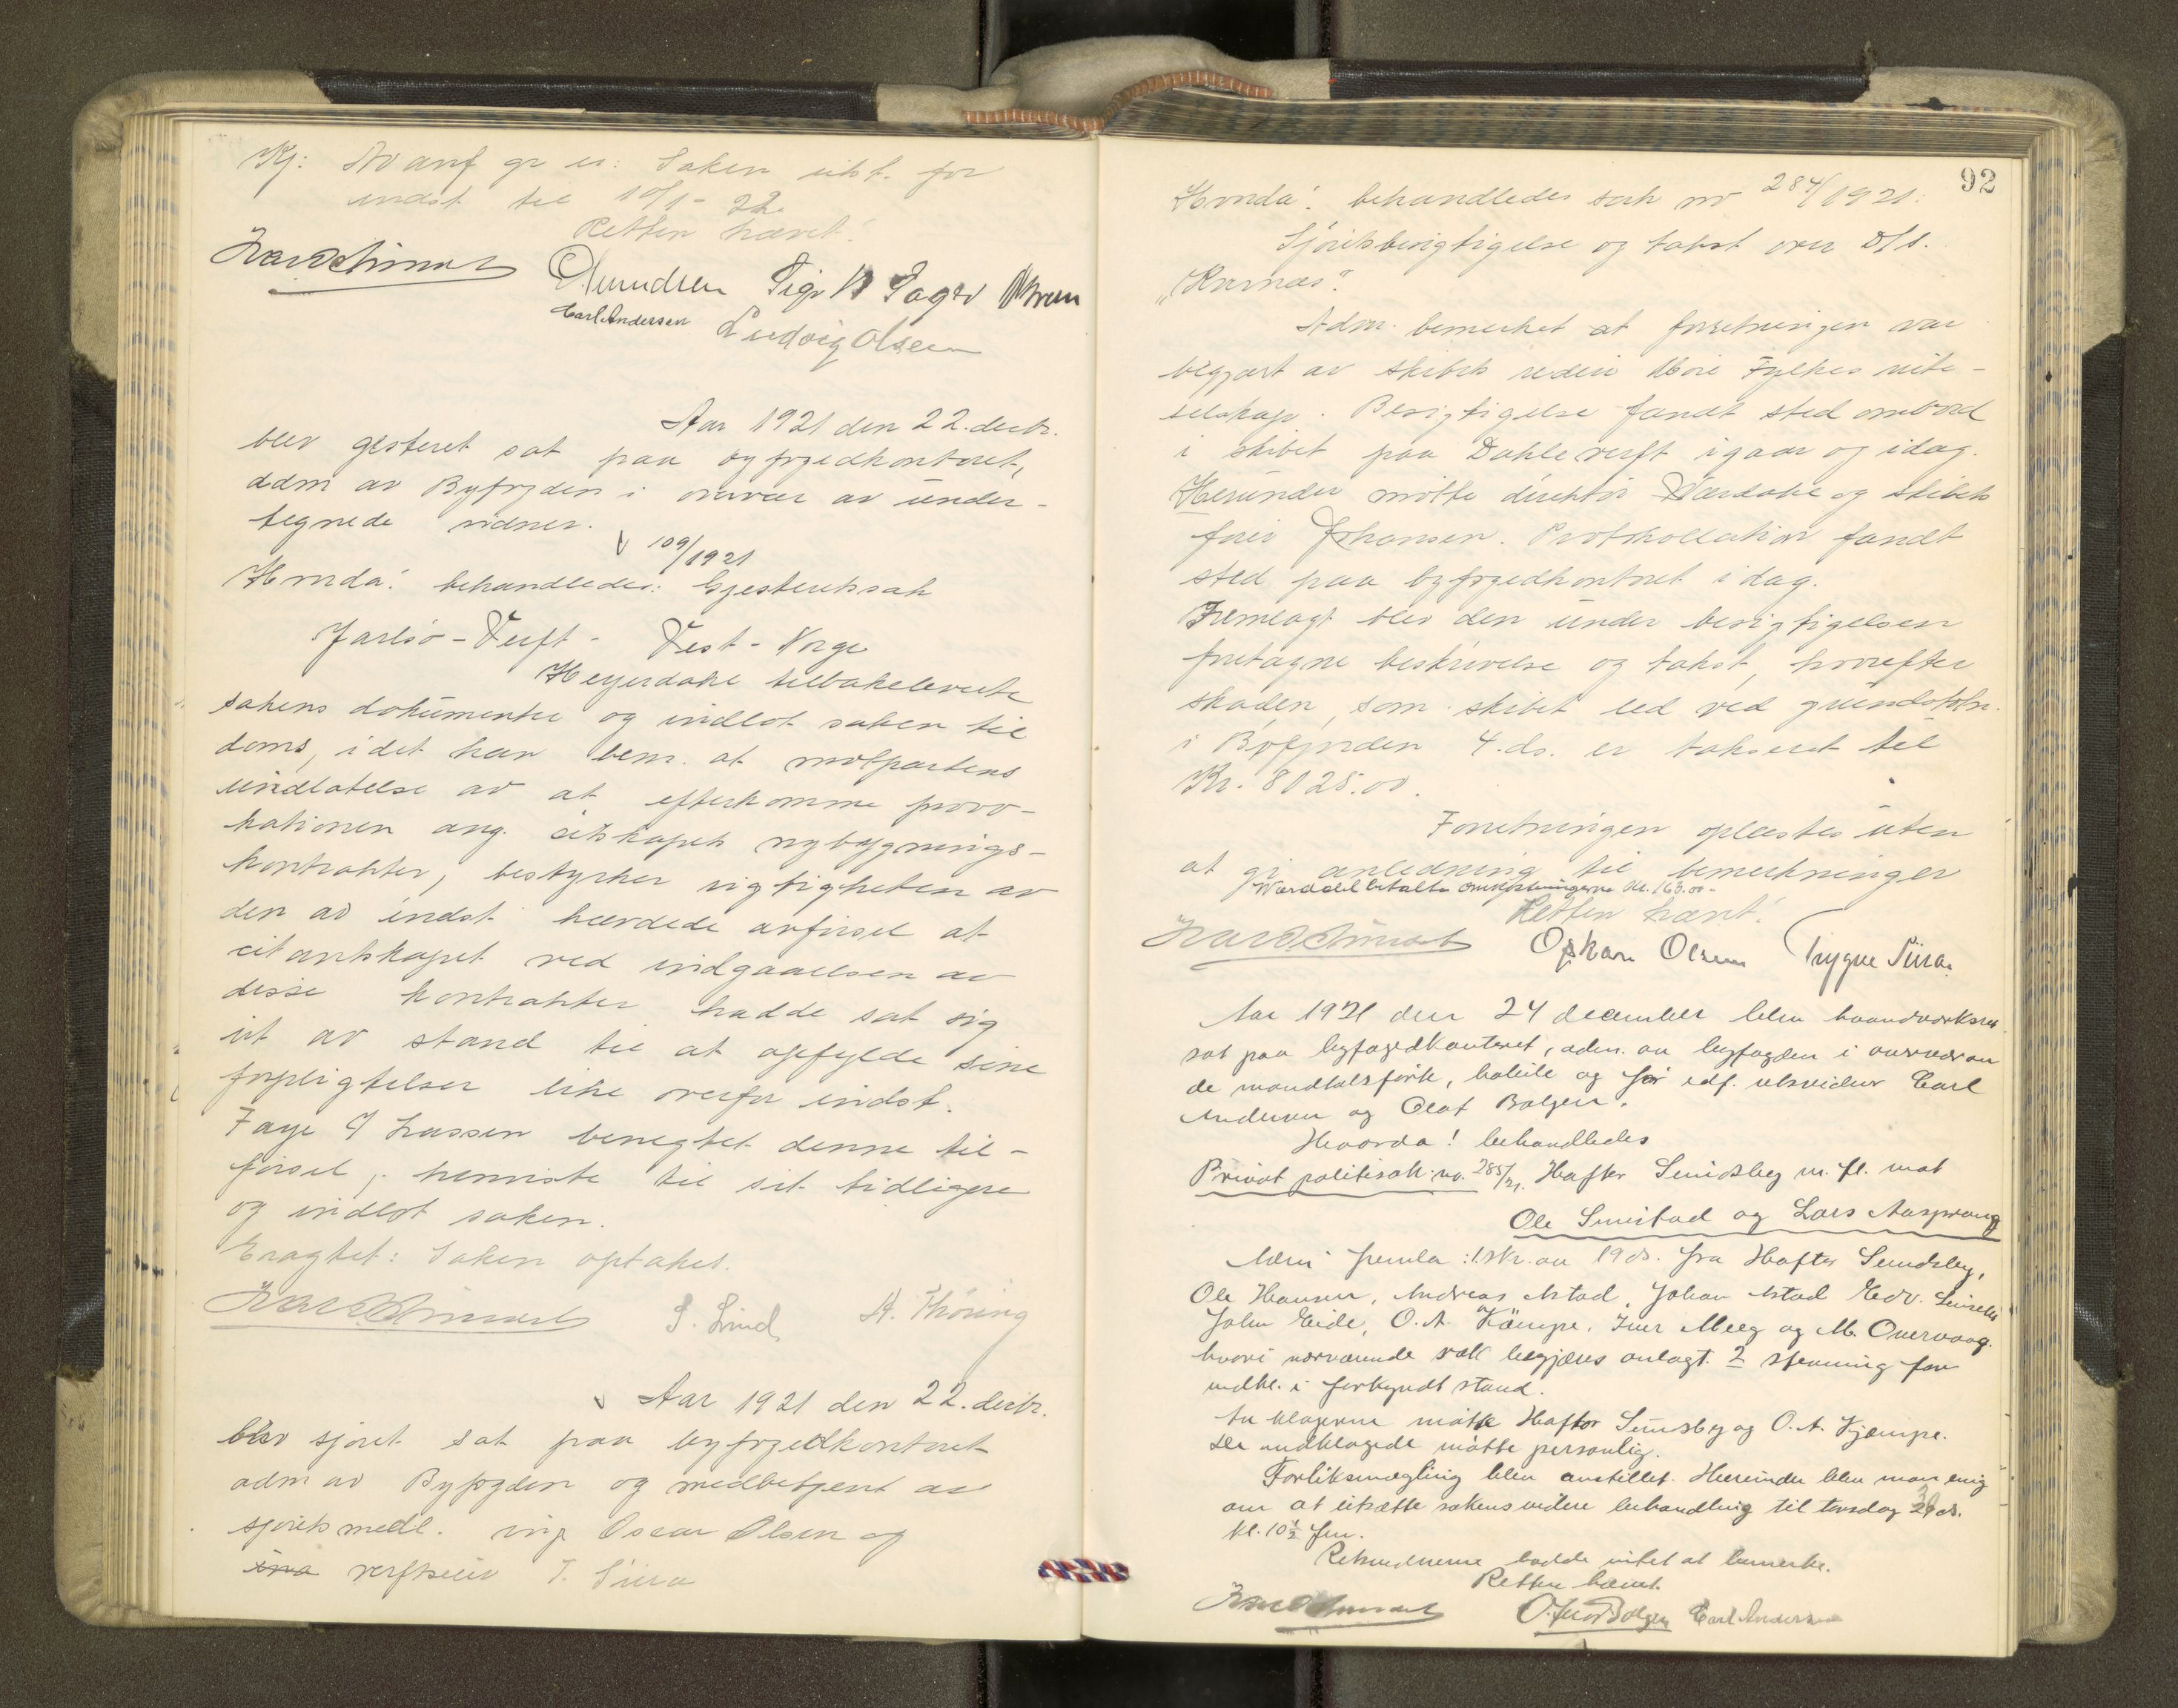 Kj: Av anf gr es: Saken utst. for
indst til 10/1 - 22
Retten hævet!
Amundsen Sigv
Carl Andersen Ludvig Olsen
Aar 1921 den 22. decbr.
blev gjesteret sat paa byfogedkontoret,
adm av Byfogden i overvær av under-
tegnede vidner.
109/1921
Hvorda! behandledes: Gjesteretssak
Jarlsø-Verft - Vest-Norge
Heyerdahl tilbakeleverte
sakens dokumenter og indlot saken til
doms, idet han bem. at motpartens
undlatelse av at efterkomme provo-
kationen ang. citskapets nybygnings-
kontrakter, bestyrker rigtigheten av
den av indst. hævdede anførsel at
citantskapet ved indgaaelsen av
disse kontrakter hadde sat sig
ut av stand til at opfylde sine
forpligtelser like overfor indst.
Faye J Lassen benegtet denne til-
førsel, henviste til sit tidligere
og indlot saken.
Eragtet: Saken optakes.
S. Lind A. Thoring
Aar 1921 den 22. decbr.
blev sjøret sat paa byfogedkontoret
adm av Byfogden og medbetjent av
sjøretsmedl. ing Oscar Olsen og
verftseier T. Siira
92
Hvorda! behandledes sak nr 284/1921:
Sjøretsbesigtigelse og takst over D/S.
"Kornæs".
Adm. bemerket at forretningen var
begjært av skibets rederi Møre Fylkes rute-
selskap. Besigtigelse fandt sted ombord
i skibet paa Dahle verft igaar og idag.
Herunder møtte direktør Wærdahl og skibets
fører Johansen. Protokollation fandt
sted paa byfogedkontoret idag.
Fremlagt blev den under besigtigelsen
foretagne beskrivelse og takst, hvorefter
skaden, som skibet led ved grundstøtn.
i Bøfjorden 4. ds. er takseret til
Kr. 8025.00.
Forretningen oplæstes uten
at gi anledning til bemerkninger
Wærdahl betalte omkostningerne kr. 163.00-
Retten hævet!
Oskar Olsen Trygve Siira
Aar 1921 den 24 december blev haandverksret
sat paa byfogedkontoret, adm. av byfogden i overvær av
de mandtalsførte, kaldte og for edf. retsvidner Carl
Andersen og Olaf Bolgen.
Hvorda! behandledes
Privat politisak nr. 285/21. Haftor Smidsby m. fl. mot
Ole Smistad og Lars Aasprong
Adm fremla: 1. skr. av 19 ds. fra Haftor Smidsby,
Ole Hansen, Andreas Astad, Johan Astad Edv.
John Eide, O. A. Kjempe, Iver Meeg og M. Overvaag.
hvori nærværende sak begjæres anlagt. 2 stevning for
indkl. i forkyndt stand.
Av klagerne møtte Haftor Smidsby og O. A. Kjempe.
De indklagede møtte personlig.
Forliksmægling blev anstillet. Herunder blev man enig
om at utsætte sakens videre behandling til torsdag 29 ds.
kl. 10½ fm.
Retsvidnerne hadde intet at bemerke.
Retten hævet.
Olaf Bolgen Carl Andersen